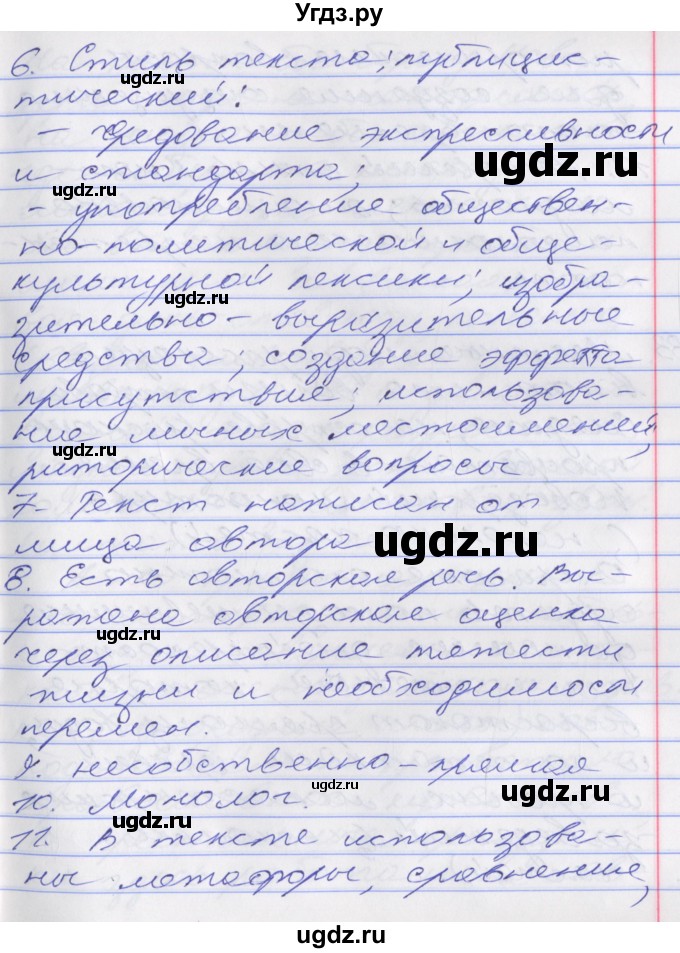 Угдз.ру
6. Стиль текста; публицис-
тический:
- чередование экспрессивности
и стандарта;
- употребление обществен-
но-политической и обще-
культурной лексики; изобра-
зительно-выразительные
средства; создание эффекта
присутствия; использова-
ние личных местоимений,
риторические вопросы
7. Текст написан от
лица автора
8. Есть авторская речь. Вы-
ражена авторская оценка
через описание тяжести
жизни и необходимости
перемен.
9. несобственно-прямая
10. Монолог.
11. В тексте использова-
ны метафоры, сравнение,
ugdz.ru
ugdz.ru
ugdz.ru
ugdz.ru
ugdz.ru
ugdz.ru
ugdz.ru
ugdz.ru
ugdz.ru
ugdz.ru
ugdz.ru
ugdz.ru
ugdz.ru